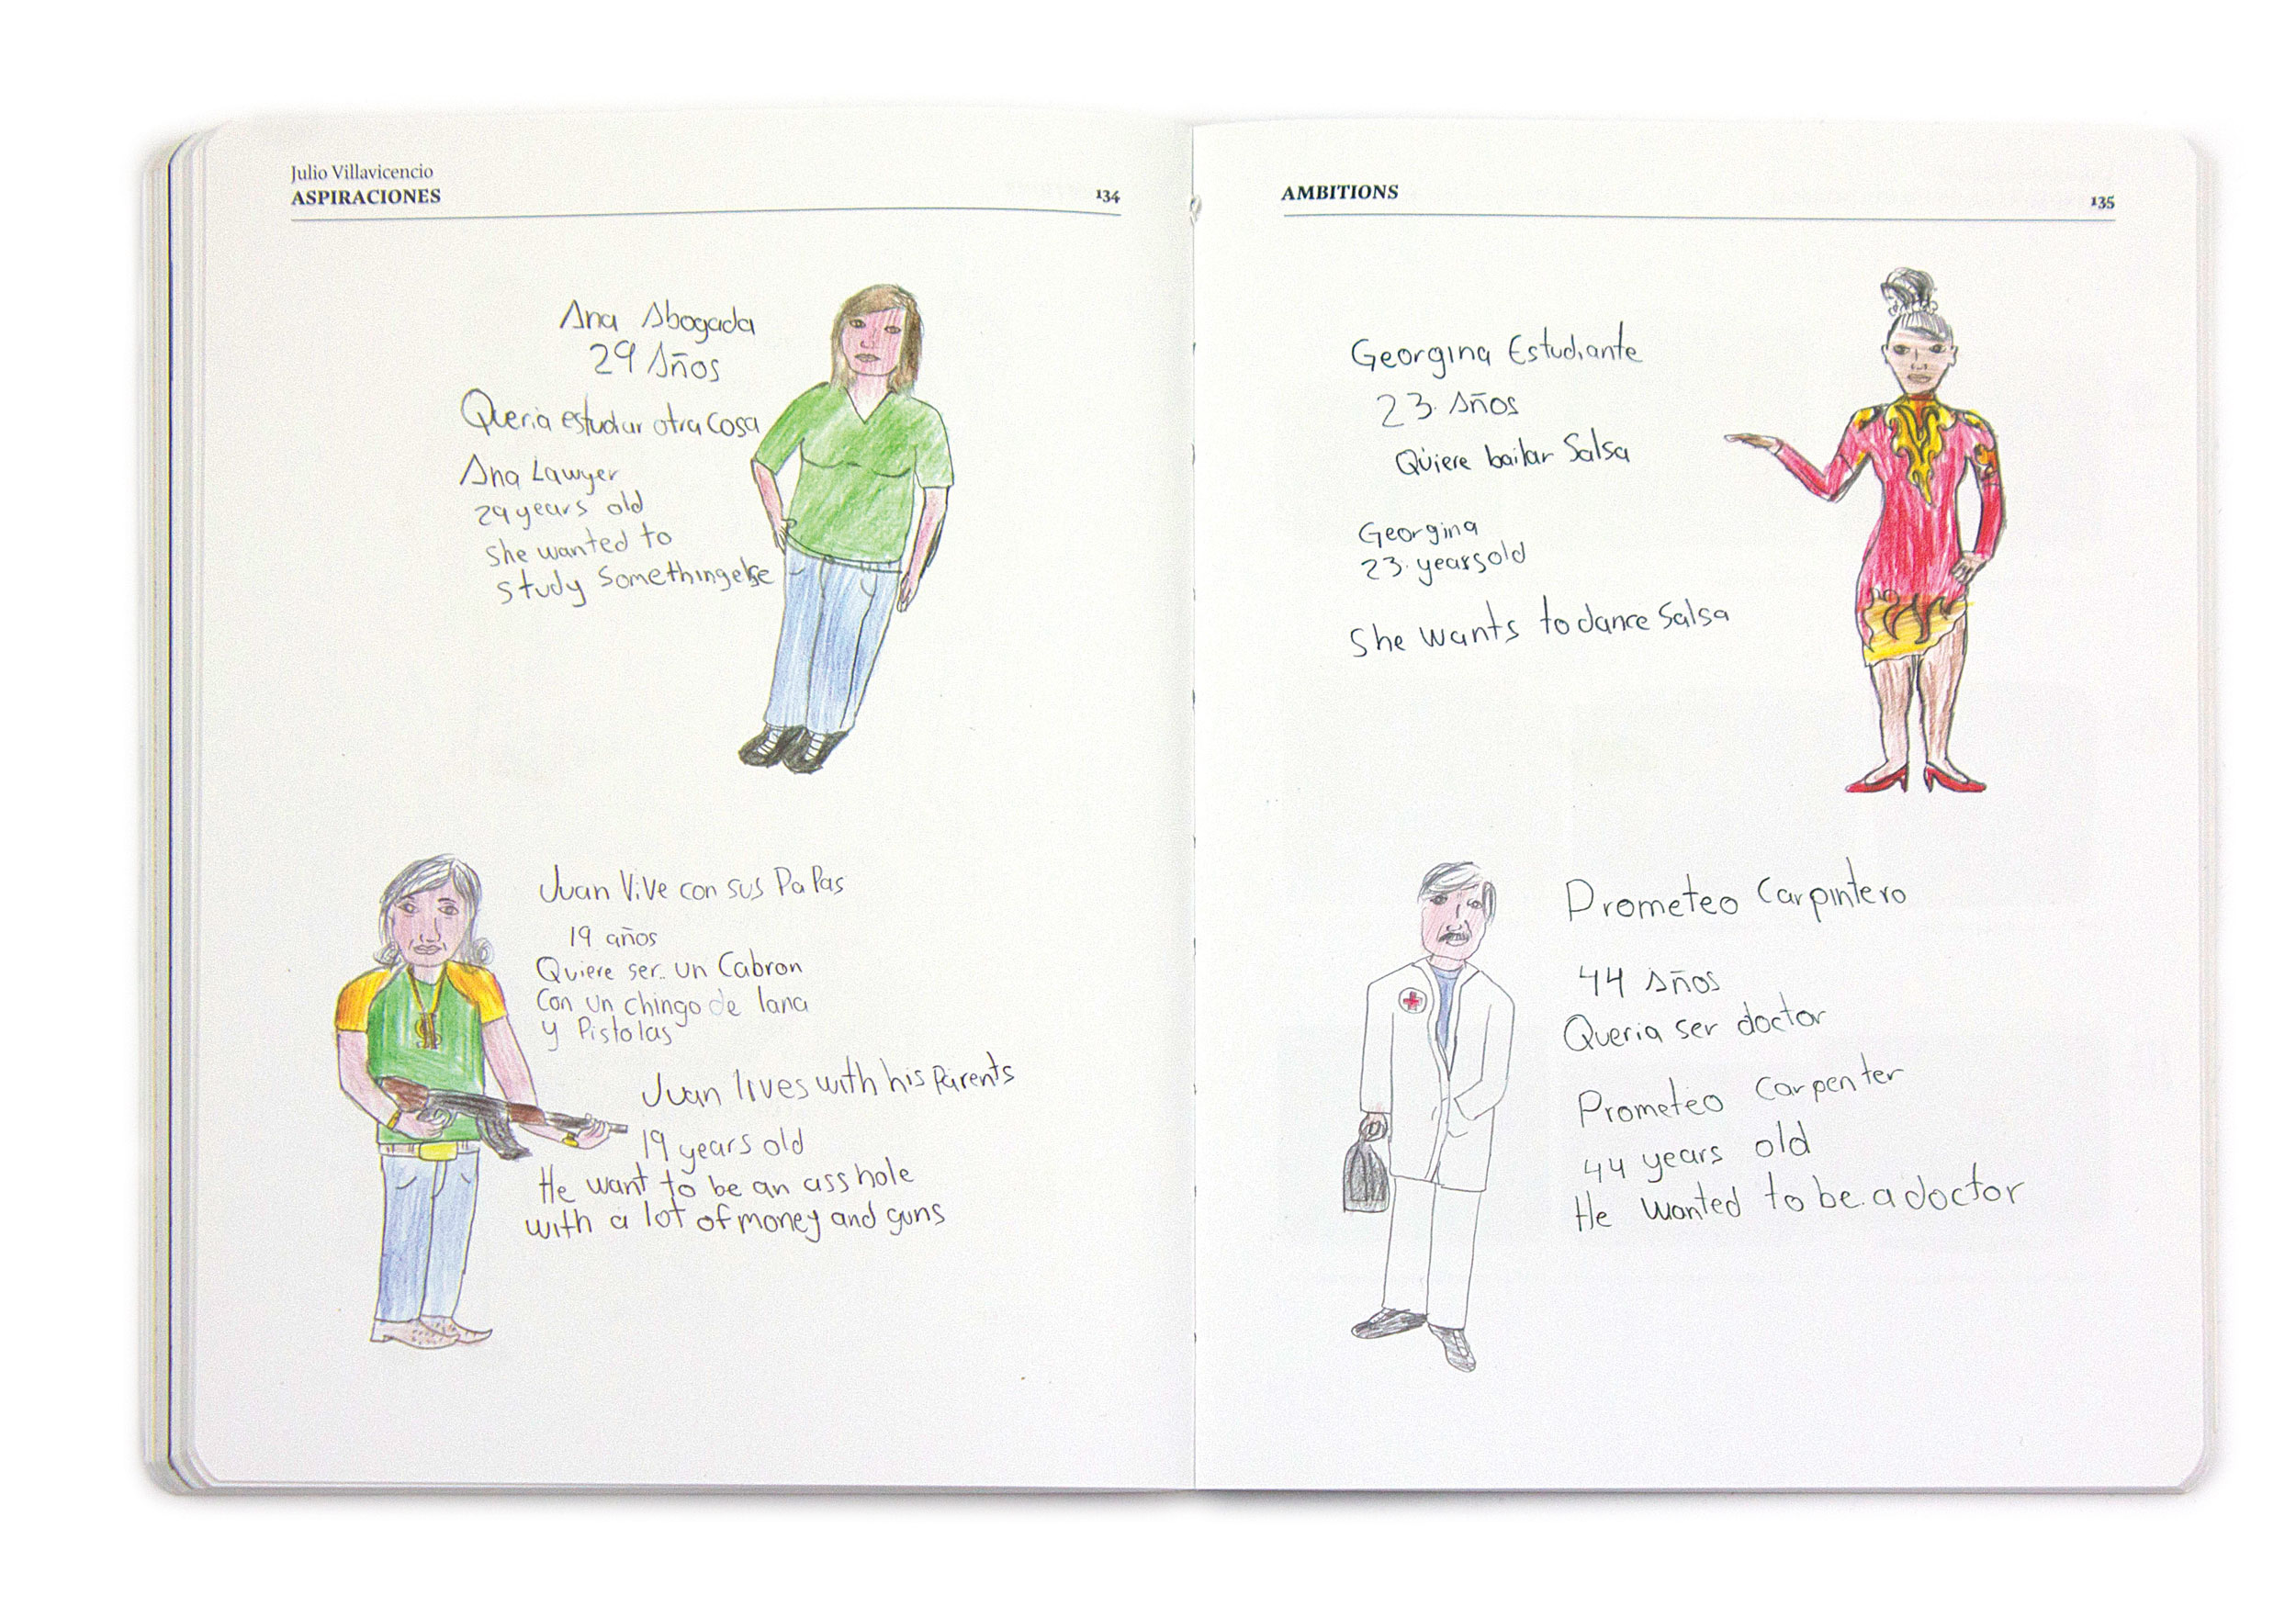 Julio Villavicencio
ASPIRACIONES
134
Ana Abogada
29 Años
Queria estudiar otra cosa
Ana Lawyer
29 years old
She wanted to
study something else
Juan Vive con sus PaPas
19 años
Quiere ser un Cabron
Con un chingo de lana
y Pistolas
Juan lives with his Parents
19 years old
He want to be an asshole
with a lot of money and guns
AMBITIONS
135
Georgina Estudiante
23 Años
Quiere bailar Salsa
Georgina
23 years old
She wants to dance Salsa
Prometeo Carpintero
44 Años
Queria ser doctor
Prometeo Carpenter
44 years old
He wanted to be a doctor